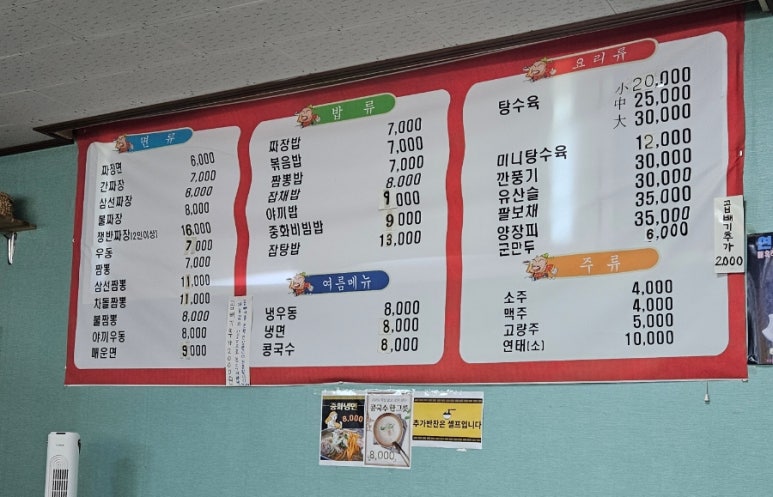 면 류
짜장면 6,000
간짜장 7,000
삼선짜장 8,000
불짜장 8,000
쟁반짜장(2인이상) 16,000
우동 7,000
짬뽕 7,000
삼선짬뽕 11,000
차돌짬뽕 11,000
불짬뽕 8,000
야끼우동 8,000
매운면 9,000
밥 류
짜장밥 7,000
볶음밥 7,000
짬뽕밥 7,000
잡채밥 8,000
야끼밥 9,000
중화비빔밥 9,000
잡탕밥 13,000
여름메뉴
냉우동 8,000
냉면 8,000
콩국수 8,000
요 리 류
탕수육 小 20,000
中 25,000
大 30,000
미니탕수육 12,000
깐풍기 30,000
유산슬 30,000
팔보채 35,000
양장피 35,000
군만두 6,000
주 류
소주 4,000
맥주 4,000
고량주 5,000
연태(소) 10,000
곱빼기추가
2,000
중화냉면
8,000
콩국수 한그릇
8,000
추가반찬은 셀프입니다